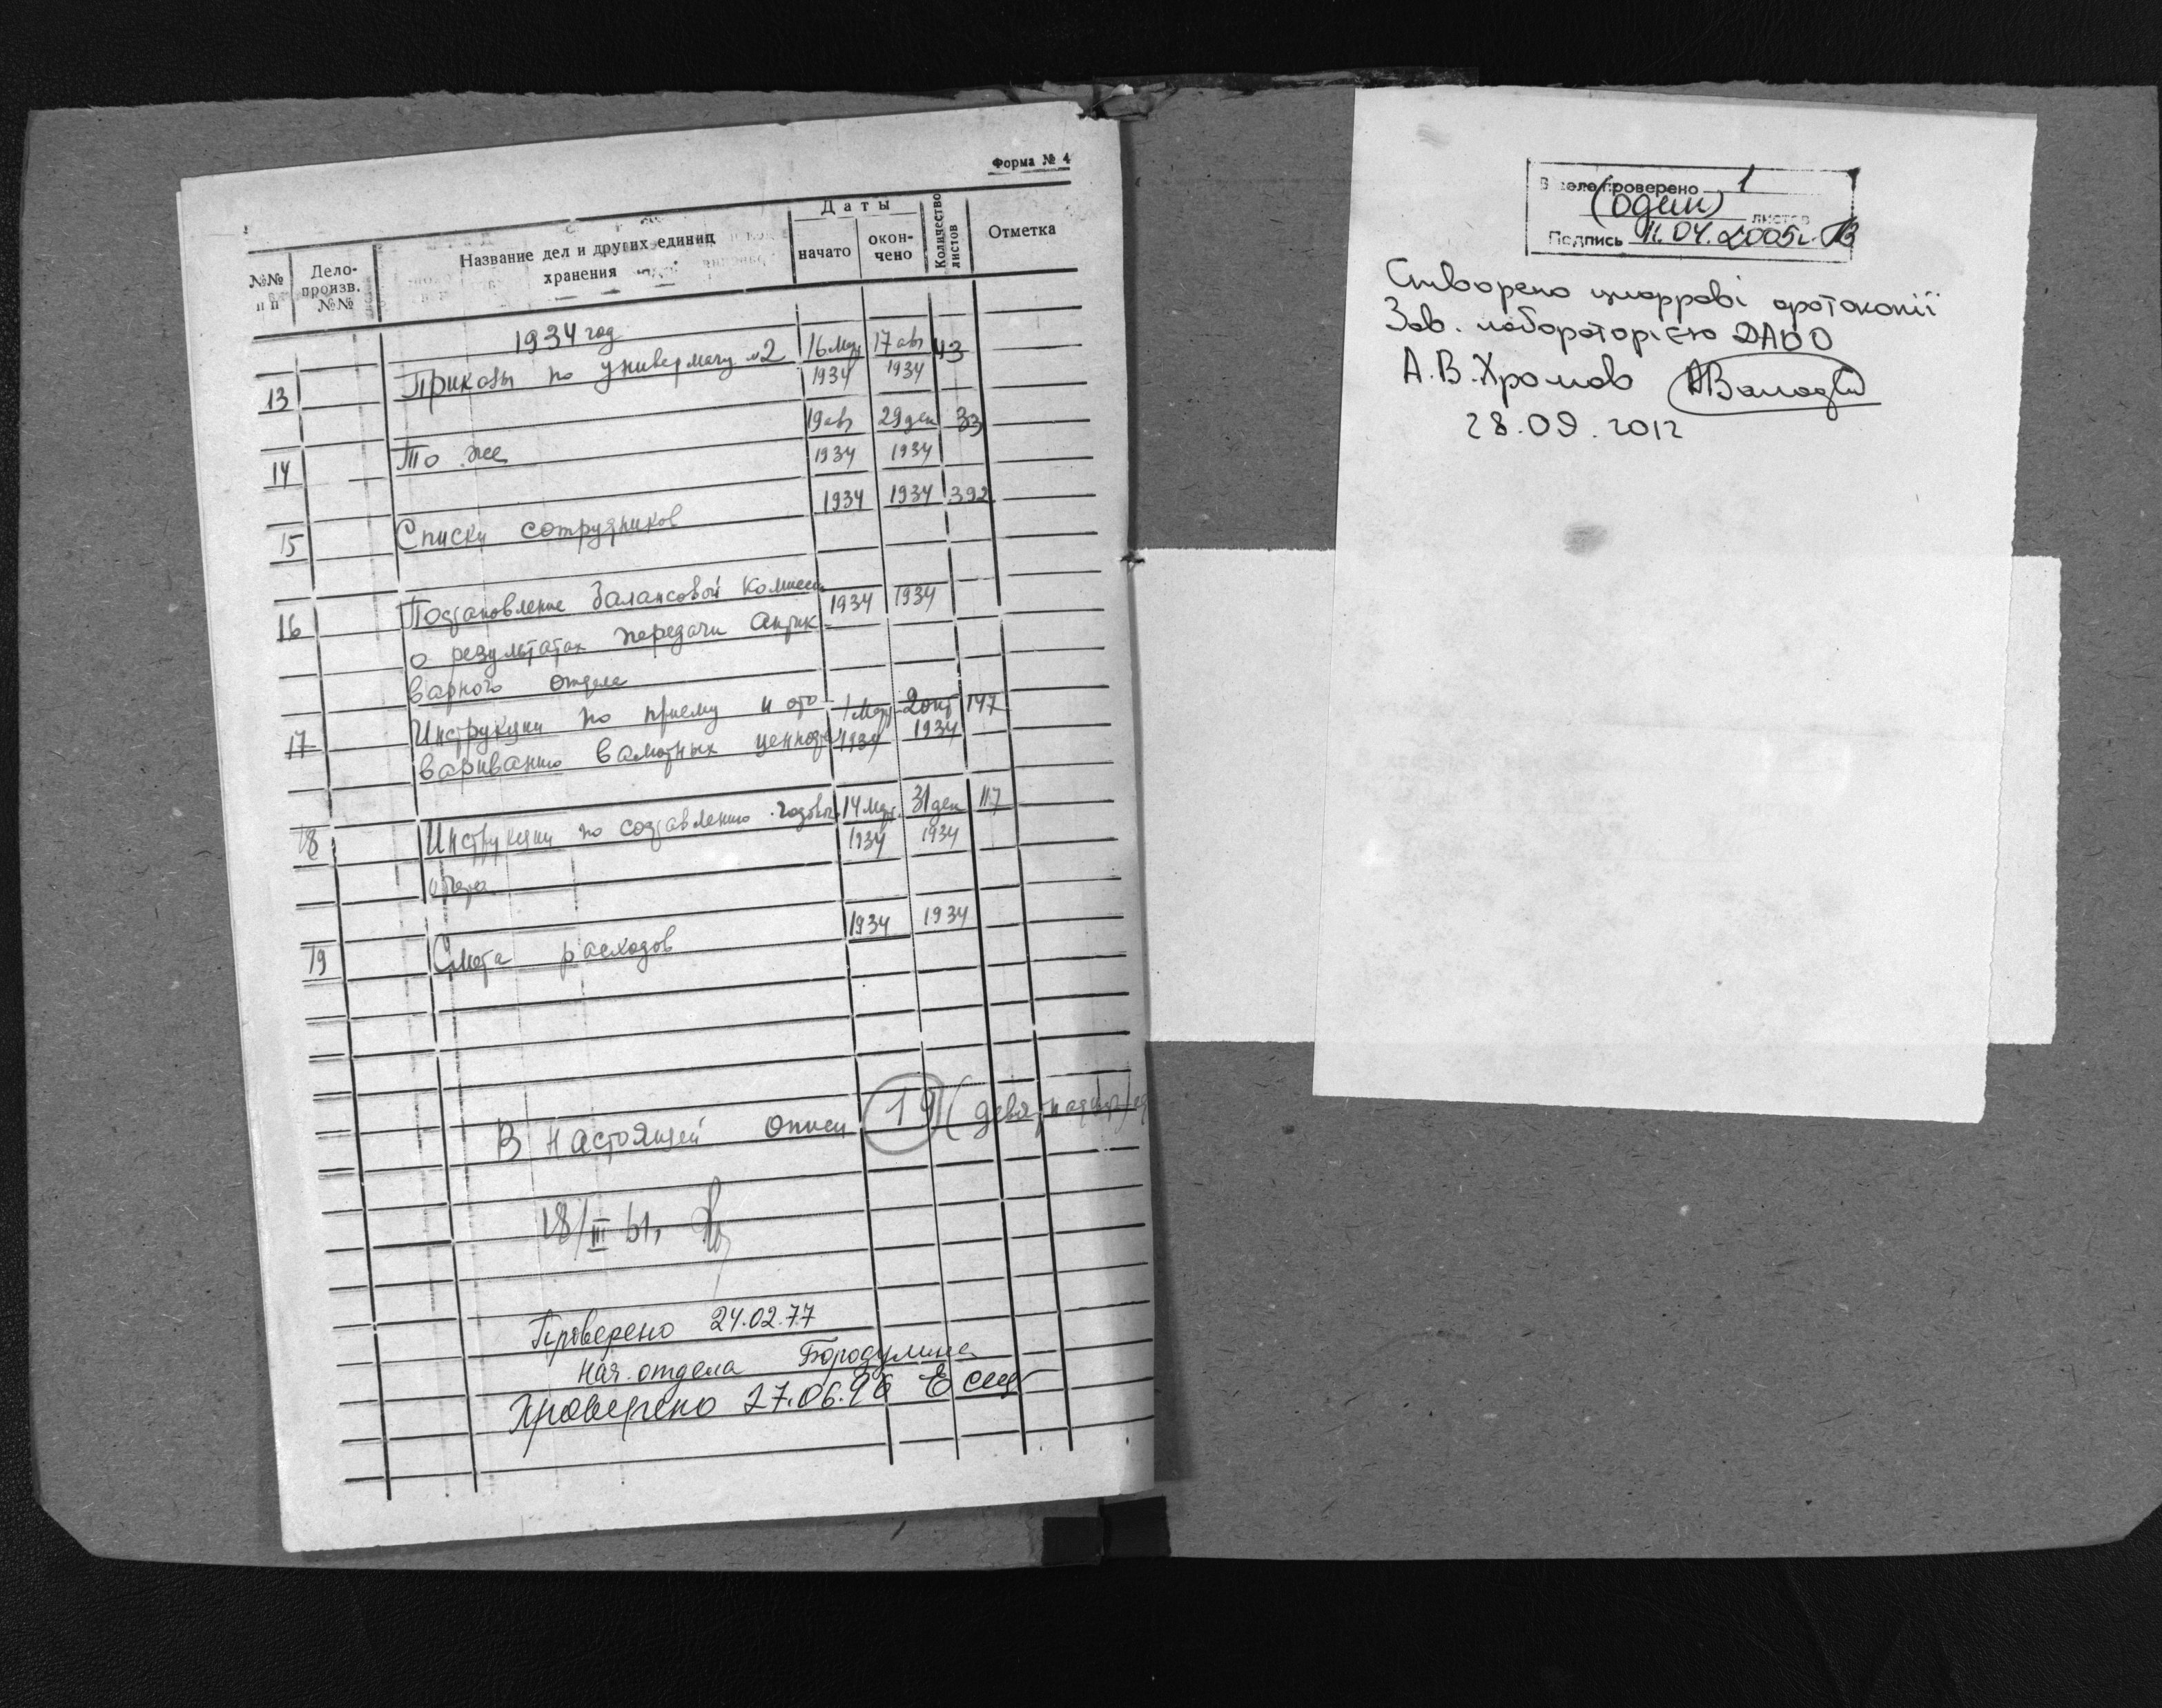 Форма № 4
№№ п п
Дело-произв. №№
Название дел и других единиц хранения
Даты
начато
окон-чено
Количество листов
Отметка
1934 год
13 Приказы по универмагу №2 16 мар 1934 17 авг 1934 43
14 То же 19 авг 1934 29 дек 1934 33
15 Списки сотрудников 1934 1934 392
16 Постановление балансовой комиссии 1934 1934
о результатах передачи антик-
варного отдела
17 Инструкции по приему и ото- 1 мар 1934 2 окт 1934 147
вариванию валютных ценност
18 Инструкции по составлению годовых 14 мар. 1934 31 дек 1934 117
отчета
19 Смета расходов 1934 1934
В настоящей описи 19 (девятнадцать) ед
18/III 61,
Проверено 24.02.77
нач. отдела Бородулина
Проверено 27.06.96
В деле проверено 1
(один) листов
Подпись 11.04.2005г.
Створено цифрові фотокопії
Зав. лабораторією ДАОО
А.В.Хромов
28.09.2012